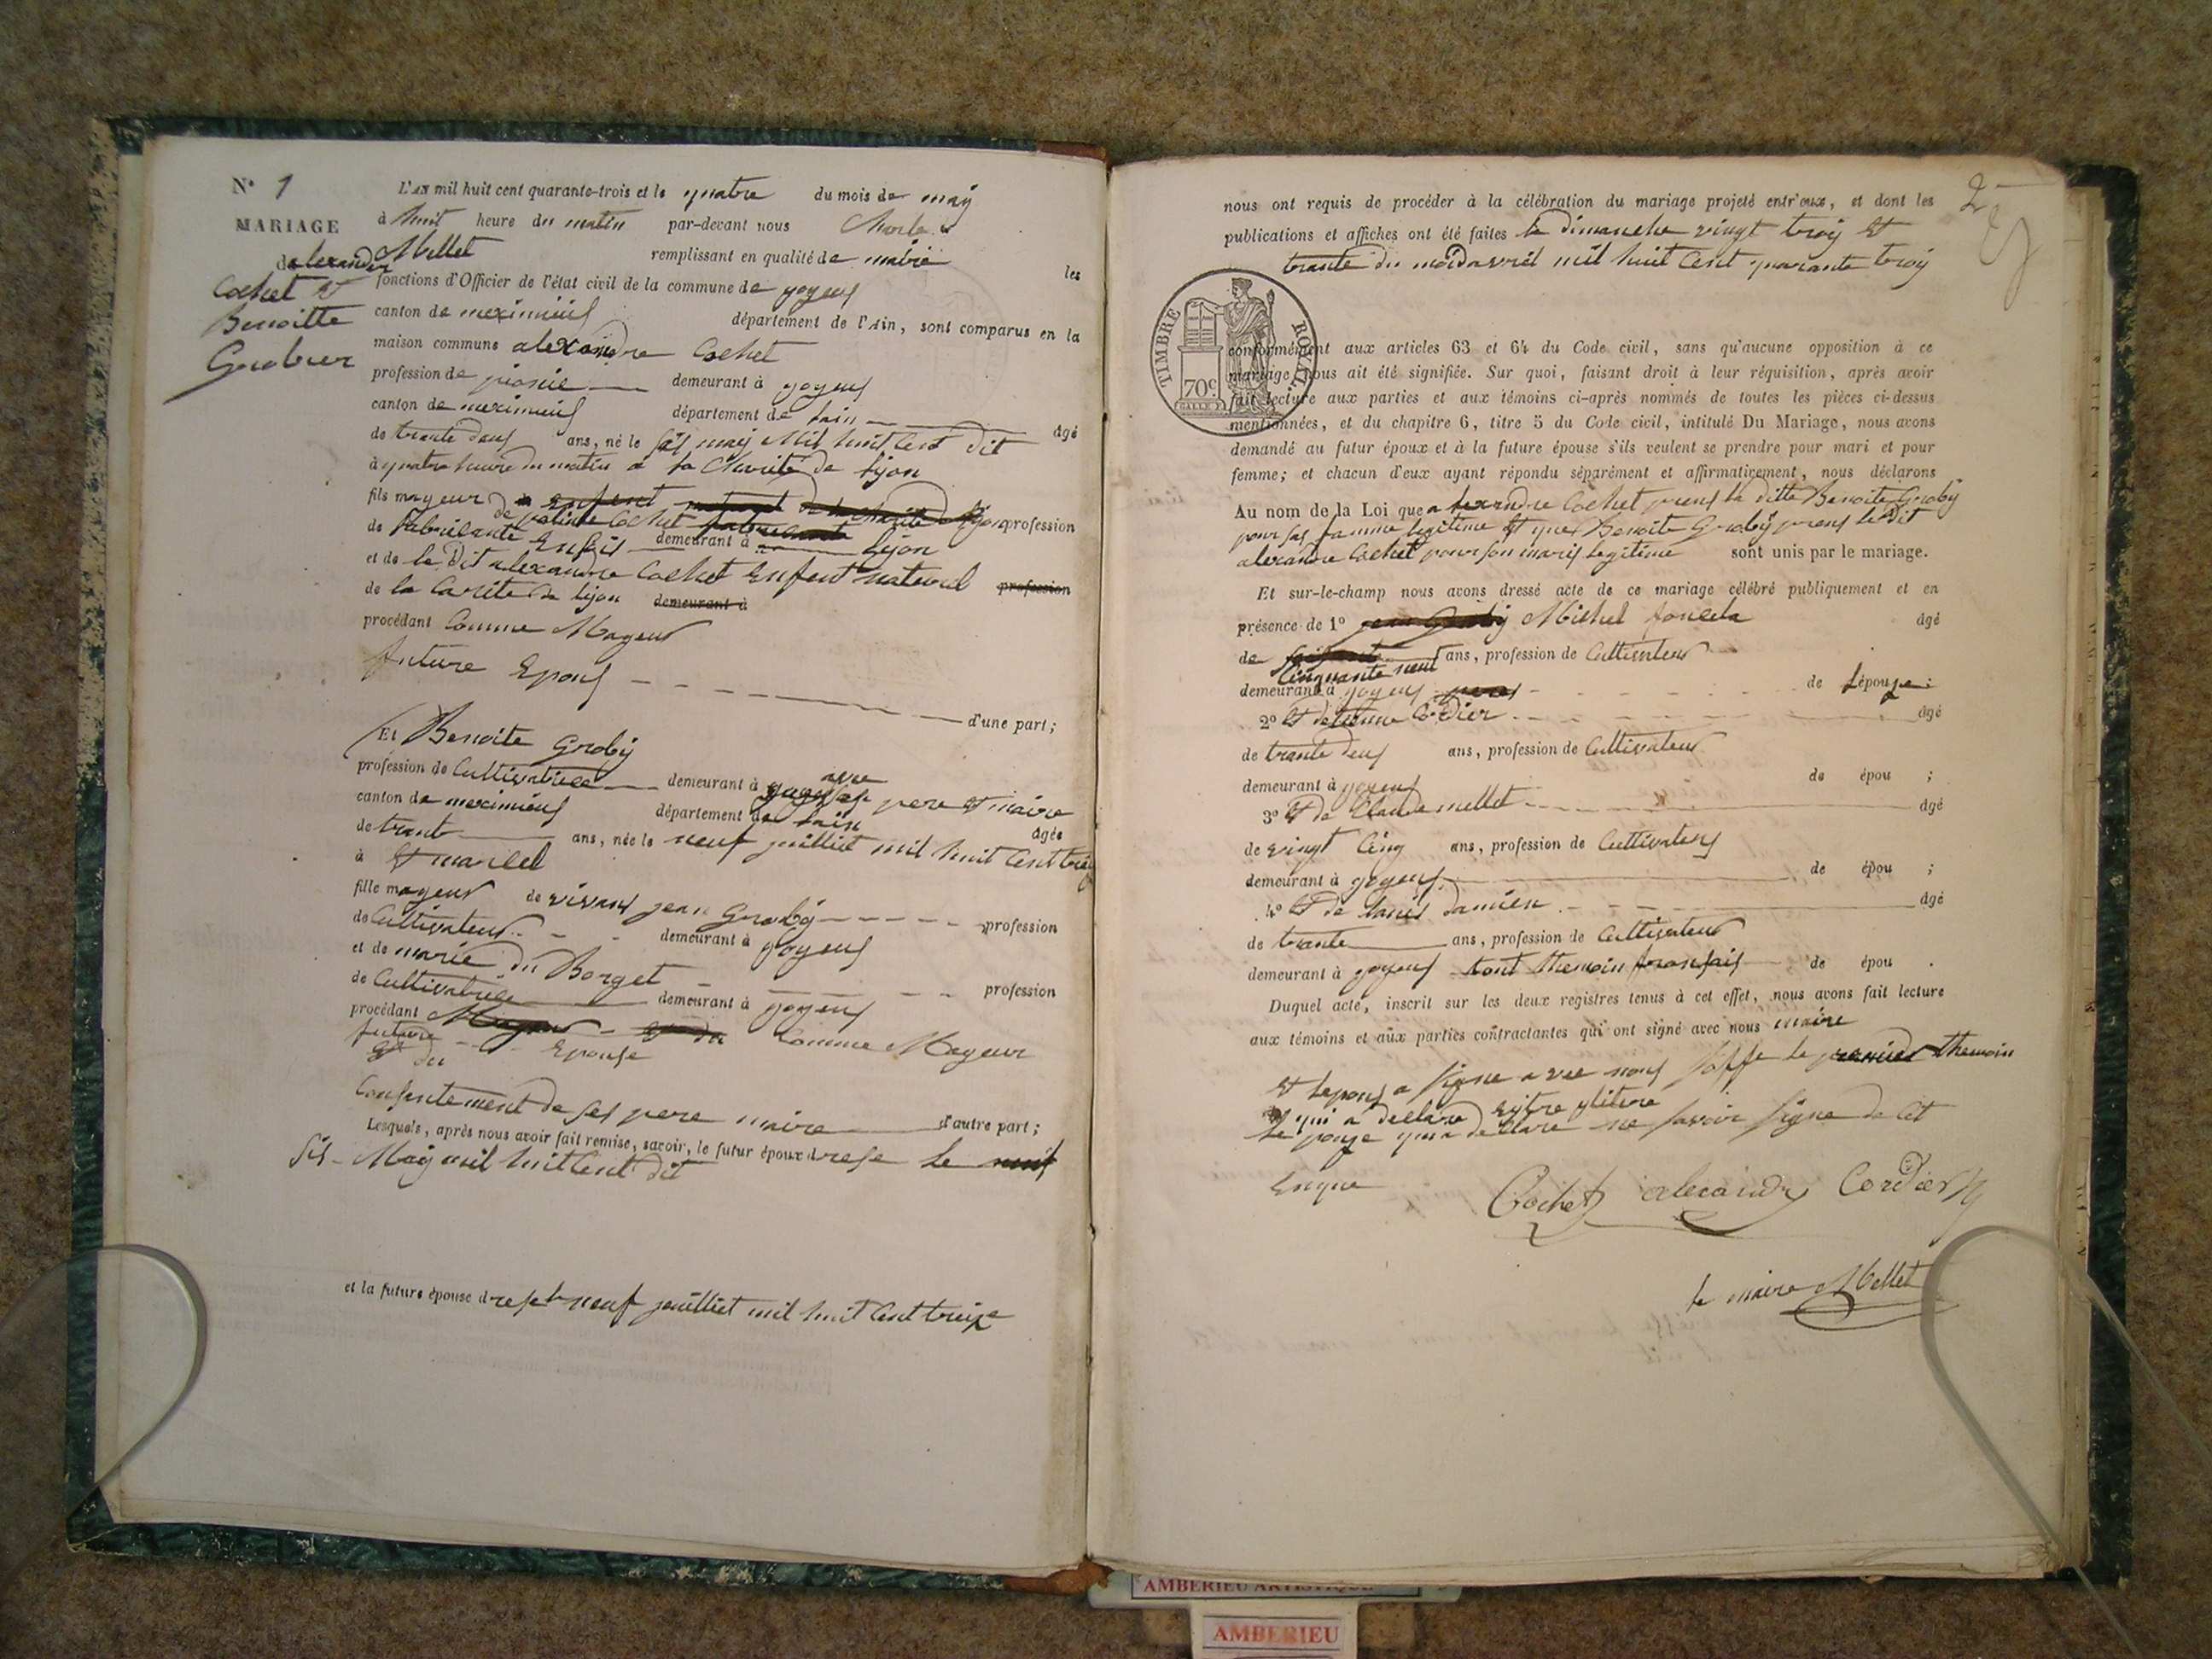 N° 1
MARIAGE
de alexandre
Cochet et
Benoitte
Grobier
L'an mil huit cent quarante-trois et le quatre du mois de maÿ
à huit heure du matin par-devant nous Charle
Mellet remplissant en qualité de maire les
fonctions d'Officier de l'état civil de la commune de joyeux
canton de meximieux département de l'Ain, sont comparus en la
maison commune alexandre Cochet
profession de demeurant à joyeux
canton de meximieux département de lain âgé
de trante deux ans, né le sis maÿ Mil huit Cent dit
à quatre heure du matin a la Charité de lÿon
fils mayeur de enfent naturel de la charité lÿon profession
de fabricante demeurant à lÿon
et de le Dit alexandre Cochet Enfent naturel profession
de la Carité de lijon demeurant à
procédant Comme Mayeur
future Epoux
d'une part;
Et Benoite Grobÿ
profession de Cultivatrice demeurant à joyeux avec
canton de meximieux département de lain pere et maire
de trante ans, née le neuf juilliet mil huit Cent treize âgée
à St marcel
fille mayeur de vivant jean Grobÿ profession
de Cultivateur demeurant à joyeux
et de marie du Borget profession
de Cultivatrice demeurant à joyeux
procédant Mayeur Comme Mayeur
future Epouse
et du
Consentement de ses pere maire d'autre part;
Lesquels, après nous avoir fait remise, savoir, le futur époux drese le neuf
sis Maÿ mil huit Cent dit
et la future épouse drese le neuf juilliet mil huit Cent treize
2
nous ont requis de procéder à la célébration du mariage projeté entr'eux, et dont les
publications et affiches ont été faites le dimanche vingt troÿ et
trante du moi davril mil huit Cent quarante troÿ
TIMBRE ROYAL
70c
conformément aux articles 63 et 64 du Code civil, sans qu'aucune opposition à ce
mariage nous ait été signifiée. Sur quoi, faisant droit à leur réquisition, après avoir
fait lecture aux parties et aux témoins ci-après nommés de toutes les pièces ci-dessus
mentionnées, et du chapitre 6, titre 5 du Code civil, intitulé Du Mariage, nous avons
demandé au futur époux et à la future épouse s'ils veulent se prendre pour mari et pour
femme; et chacun d'eux ayant répondu séparément et affirmativement, nous déclarons
Au nom de la Loi que alexandre Cochet prens la ditte Benoite Grobÿ
pour sas famme legitime et que Benoite Grobÿ prens le Dit
alexandre Cochet pour son maris legitime sont unis par le mariage.
Et sur-le-champ nous avons dressé acte de ce mariage célébré publiquement et en
présence de 1° Michel âgé
de Cinquante neuf ans, profession de Cultivateur
demeurant à joyeux de lépouse;
2° et de tienne Cordier âgé
de trante deux ans, profession de Cultivateur
demeurant à joyeux de épou ;
3° et de Claude mellet âgé
de vingt Cinq ans, profession de Cultivateur
demeurant à joyeux de épou ;
4° et de lanis damien âgé
de trante ans, profession de Cultivateur
demeurant à joyeux tout themoin fransais de épou .
Duquel acte, inscrit sur les deux registres tenus à cet effet, nous avons fait lecture
aux témoins et aux parties contractantes qui ont signé avec nous maire
et lepoux a signe avec nous soffe le premier themoin
qui a declare
le pouze qui a declare ne savoir signe de Cet
Enque
Cochet alecandre Cordier
le maire Mellet
AMBERIEU ARTISTIQUE
AMBERIEU